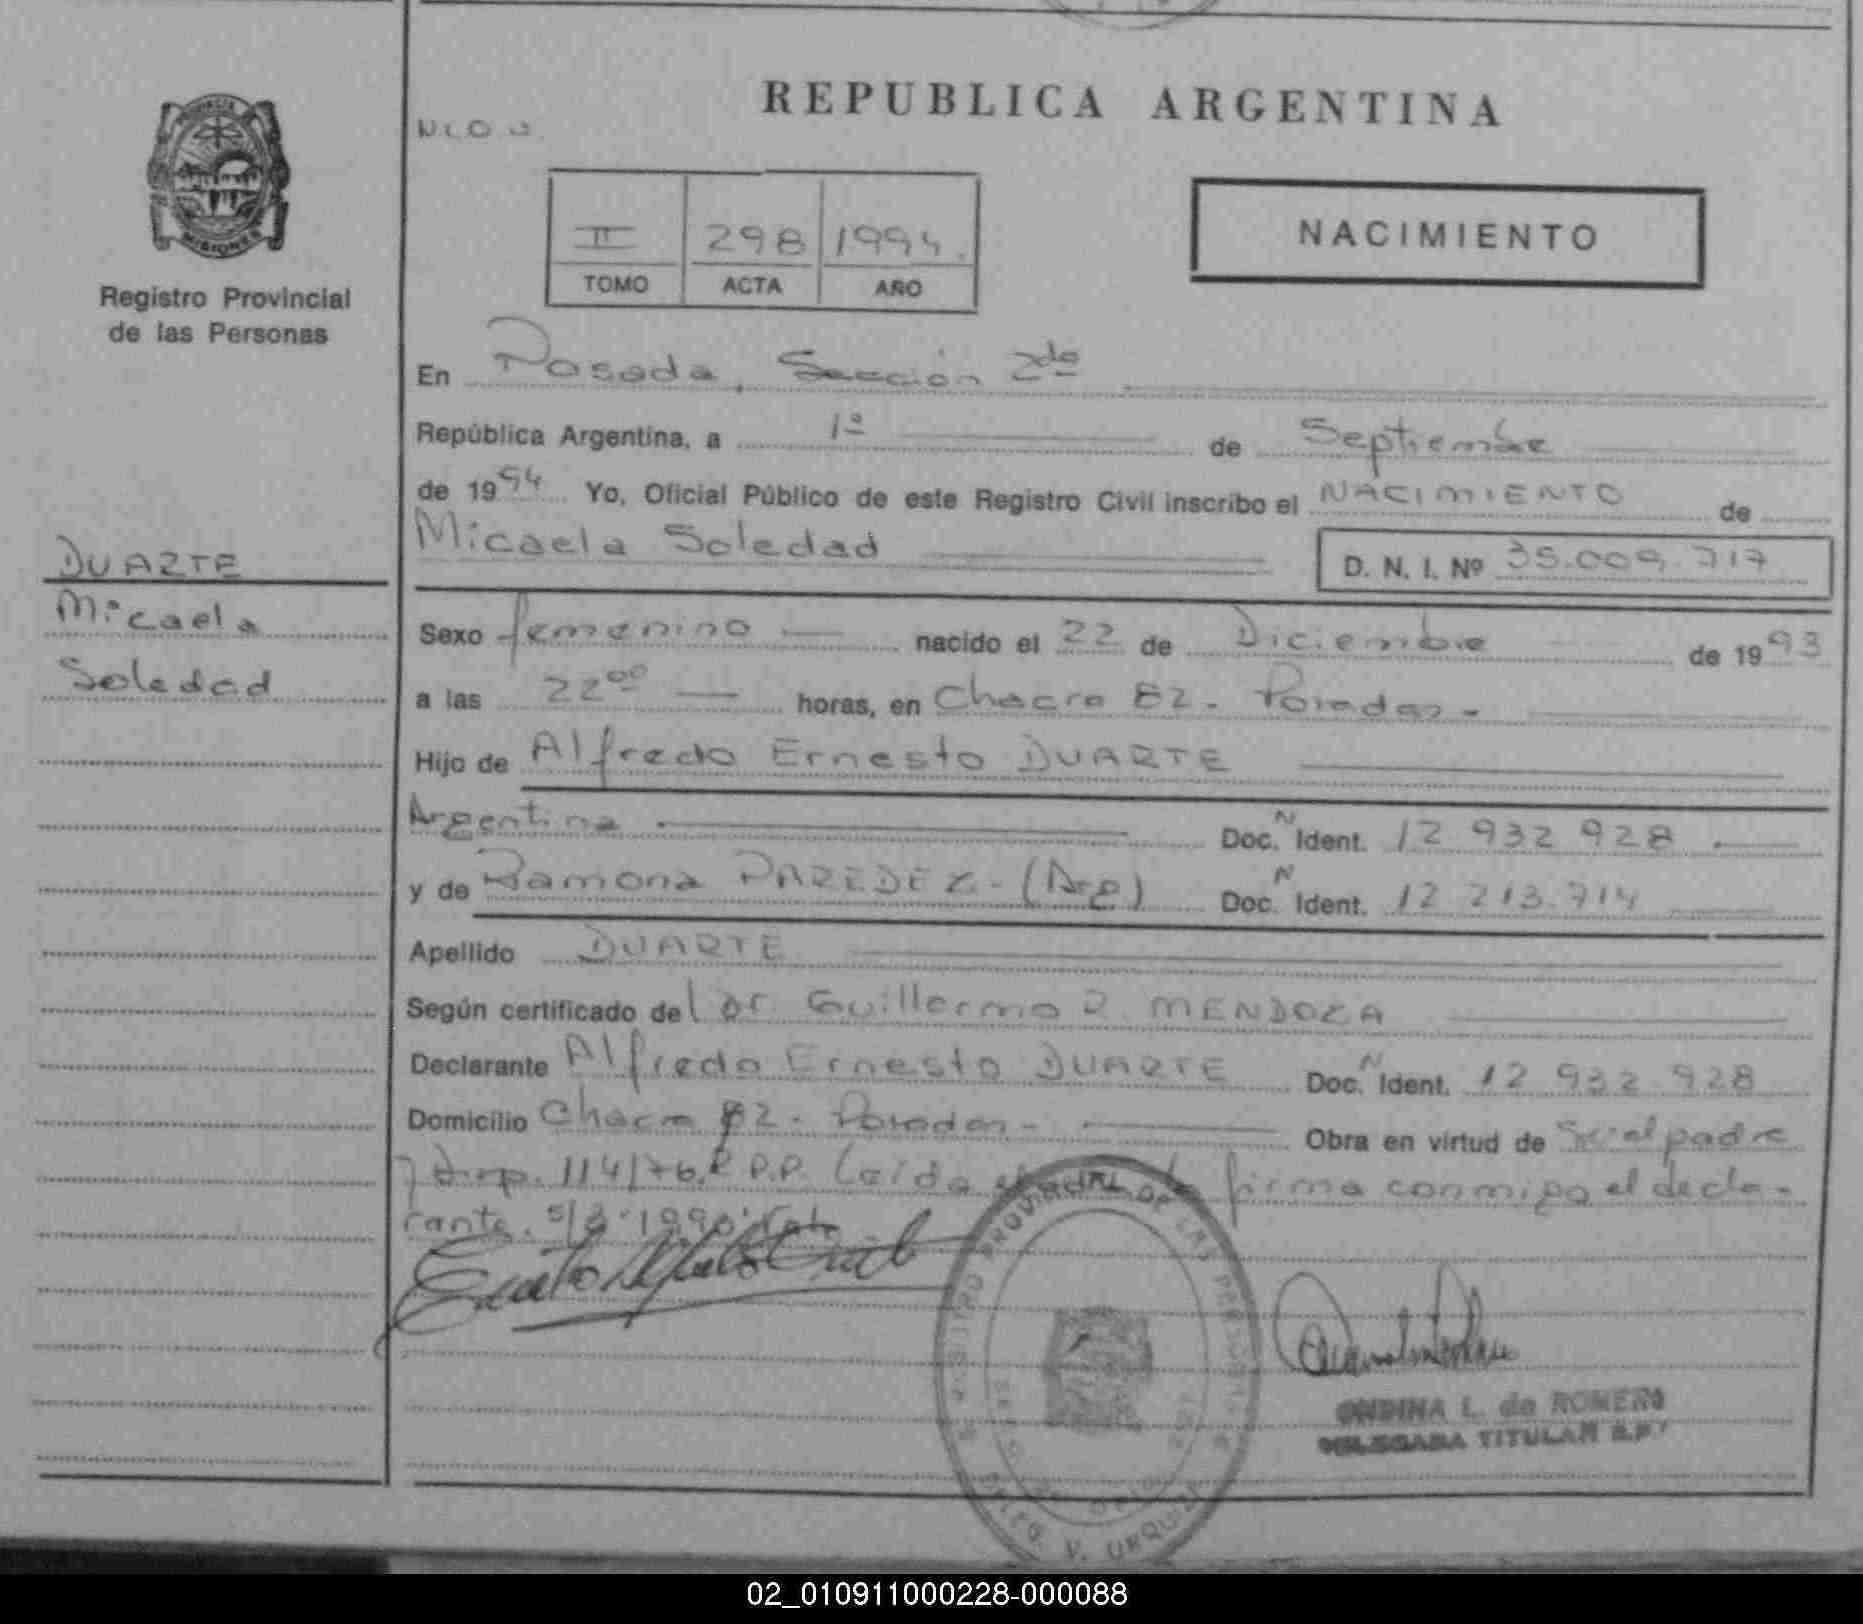 REPUBLICA ARGENTINA
PROVINCIA
MISIONES
Registro Provincial
de las Personas
II 298 1994.
TOMO ACTA AÑO
NACIMIENTO
En Posada, Sección 2da
República Argentina, a 1º de Septiembre
de 1994 Yo, Oficial Público de este Registro Civil inscribo el NACIMIENTO de
Micaela Soledad D. N. I. Nº 35.009.717
DUARTE
Micaela
Soledad
Sexo femenino nacido el 22 de Diciembre de 1993
a las 22 00 horas, en Chacra 82 - Posadas -
Hijo de Alfredo Ernesto DUARTE
Argentina Doc. N Ident. 12 932 928
y de Ramona PAREDEZ - (Arg) Doc. N Ident. 12 213.714
Apellido DUARTE
Según certificado del Dr. Guillermo R. MENDOZA
Declarante Alfredo Ernesto DUARTE Doc. N Ident. 12 932 928
Domicilio Chacra 82 - Posadas - Obra en virtud de ser el padre
y Disp. 114/76. R.P.P. Leída el acta la firma conmigo el decla-
rante.
REGISTRO PROVINCIAL DE LAS PERSONAS
DELEG. V. URQUIZA
ONDINA L. de ROMERO
DELEGADA TITULAR R.P.
02_010911000228-000088